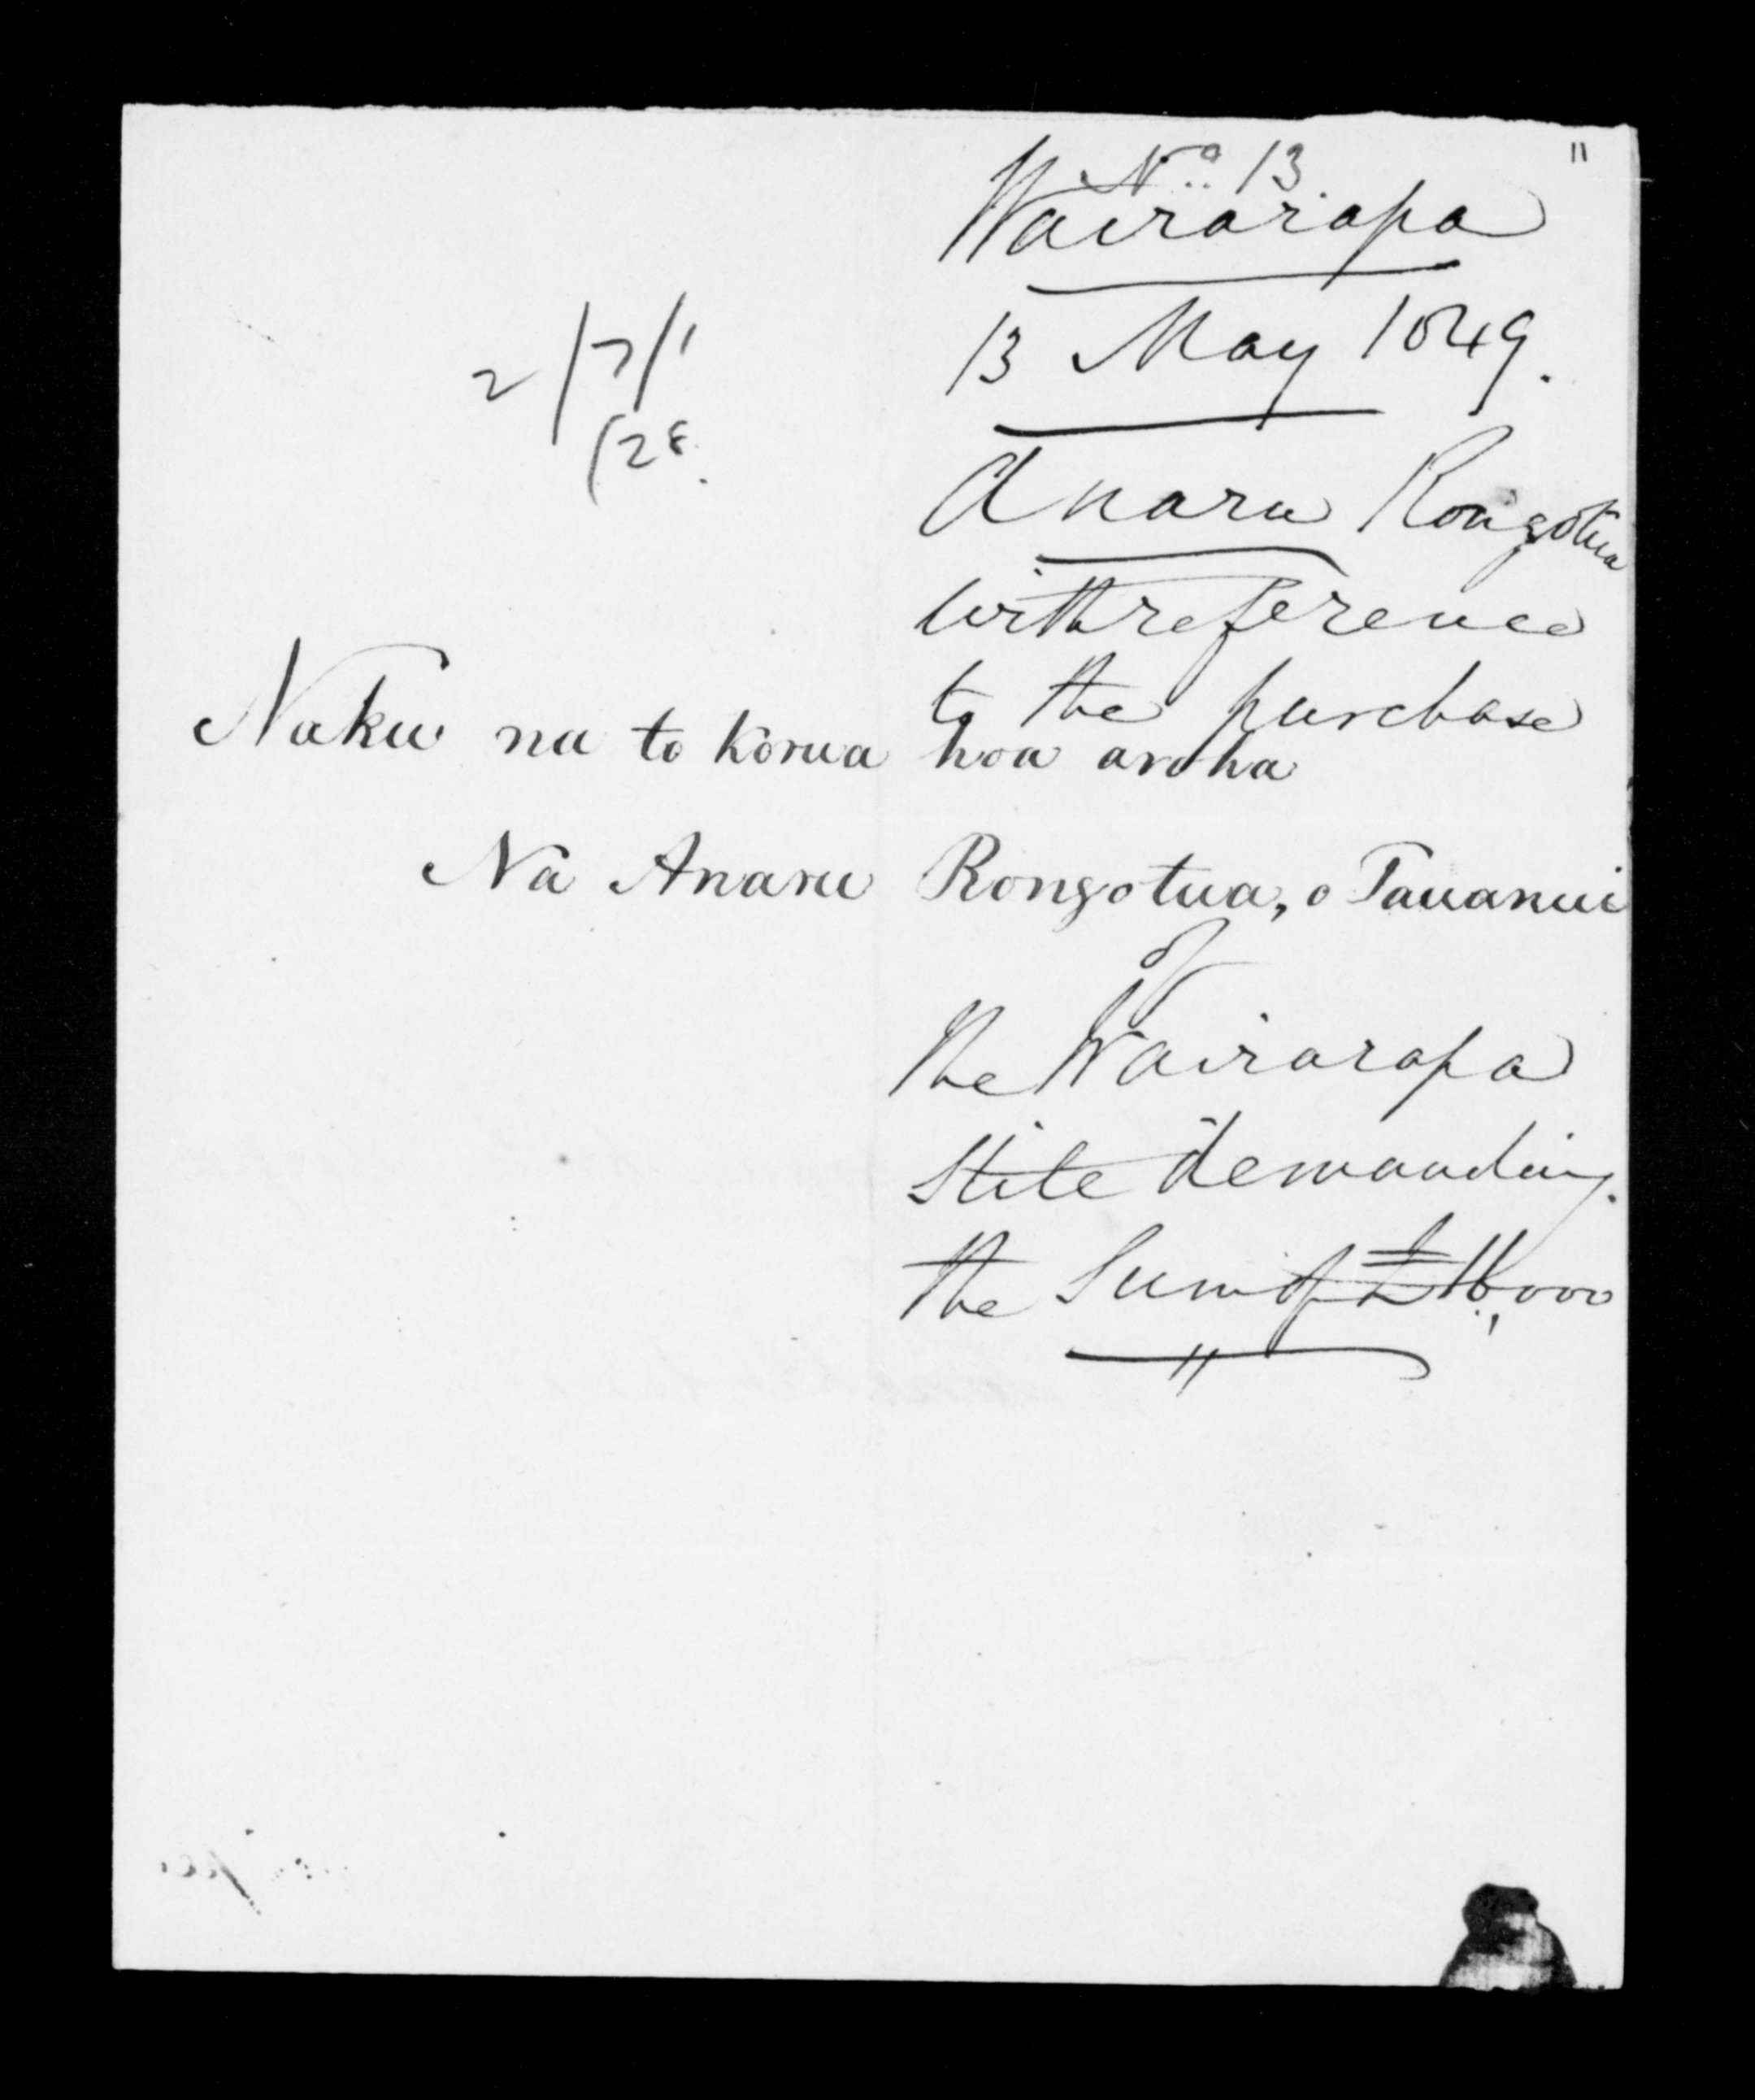 11
No. 13
Wairarapa
13 May 1849.
Anaru Rongotua
2/7/1
/28.
with reference
to the purchase
Naku na to korua hoa aroha
Na Anaru Rongotua, o Tauanui
of
the Wairarapa
State demanding
the Sum of £16,000